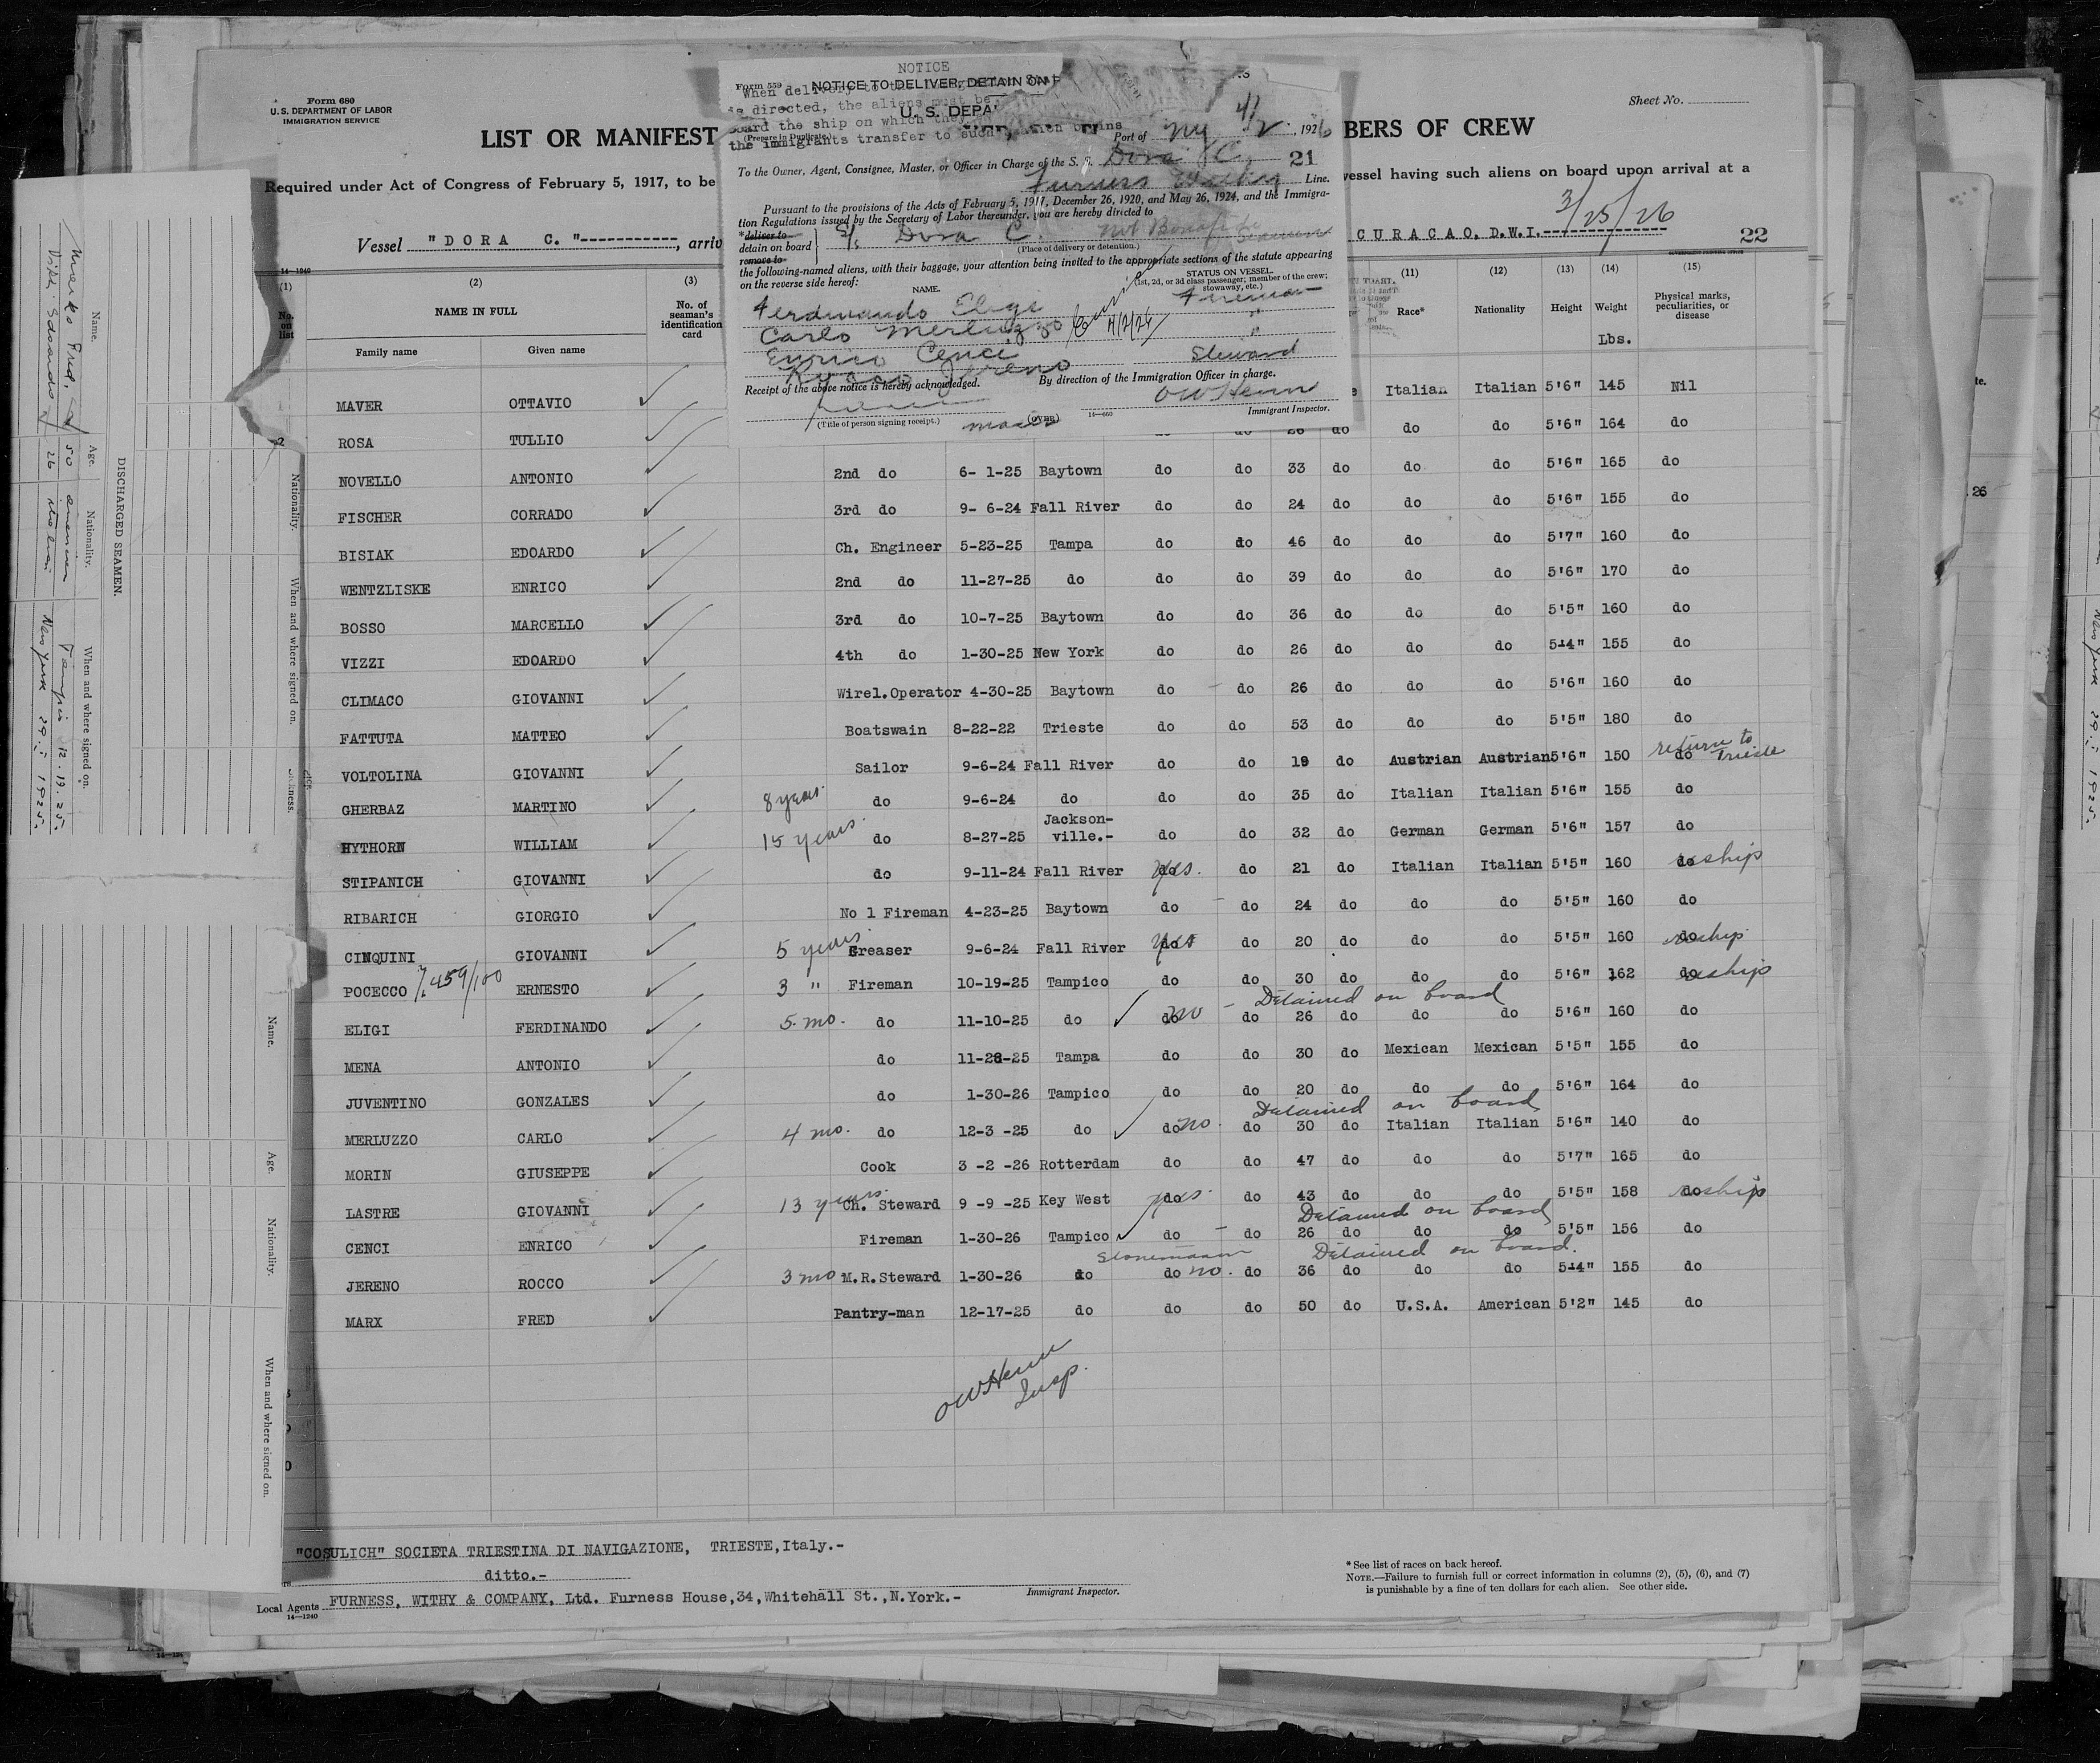 Form 680
U.S. DEPARTMENT OF LABOR
IMMIGRATION SERVICE
Sheet No.
LIST OR MANIFEST
BERS OF CREW
Required under Act of Congress of February 5, 1917, to be
vessel having such aliens on board upon arrival at a
Vessel "DORA C."-----------, arriv
CURACAO, D.W.I.
3/25/26
22
NOTICE
Form 559
NOTICE TO DELIVER, DETAIN ON
When delivery to the
is directed, the aliens must be
U. S. DEPA
board the ship on which they
(Prepare in Duplicate)
the immigrants transfer to such
Port of NY 4/2, 1926
To the Owner, Agent, Consignee, Master, or Officer in Charge of the S. S. Dora C. 21
Furness Withy Line.
Pursuant to the provisions of the Acts of February 5, 1917, December 26, 1920, and May 26, 1924, and the Immigra-
tion Regulations issued by the Secretary of Labor thereunder, you are hereby directed to
*deliver to
detain on board
remove to
S/S Dora C. not Bonafide Seamen
(Place of delivery or detention.)
the following-named aliens, with their baggage, your attention being invited to the appropriate sections of the statute appearing
on the reverse side hereof:
NAME.
STATUS ON VESSEL.
(1st, 2d, or 3d class passenger; member of the crew; stowaway, etc.)
Ferdinando Elegi Fireman
Carlo Merluzzo "
4/2/26
Enrico Cenci
Rocco Jereno Steward
Receipt of the above notice is hereby acknowledged.
By direction of the Immigration Officer in charge.
OWHenn
(Title of person signing receipt.)
(OVER)
14—660
Immigrant Inspector.
14—1240
(1) (2) (3) (11) (12) (13) (14) (15)
No. on list
NAME IN FULL
Family name Given name
No. of seaman's identification card
Race* Nationality Height Weight Lbs. Physical marks, peculiarities, or disease
MAVER OTTAVIO Italian Italian 5'6" 145 Nil
2 ROSA TULLIO do 26 do do do 5'6" 164 do
NOVELLO ANTONIO 2nd do 6- 1-25 Baytown do do 33 do do do 5'6" 165 do
FISCHER CORRADO 3rd do 9- 6-24 Fall River do do 24 do do do 5'6" 155 do
BISIAK EDOARDO Ch. Engineer 5-23-25 Tampa do do 46 do do do 5'7" 160 do
WENTZLISKE ENRICO 2nd do 11-27-25 do do do 39 do do do 5'6" 170 do
BOSSO MARCELLO 3rd do 10-7-25 Baytown do do 36 do do do 5'5" 160 do
VIZZI EDOARDO 4th do 1-30-25 New York do do 26 do do do 5-4" 155 do
CLIMACO GIOVANNI Wirel.Operator 4-30-25 Baytown do do 26 do do do 5'6" 160 do
FATTUTA MATTEO Boatswain 8-22-22 Trieste do do 53 do do do 5'5" 180 do
VOLTOLINA GIOVANNI Sailor 9-6-24 Fall River do do 19 do Austrian Austrian 5'6" 150 do return to Trieste
GHERBAZ MARTINO 8 years. do 9-6-24 do do do 35 do Italian Italian 5'6" 155 do
HYTHORN WILLIAM 15 years. do 8-27-25 Jackson-ville.- do do 32 do German German 5'6" 157 do
STIPANICH GIOVANNI do 9-11-24 Fall River do yes. do 21 do Italian Italian 5'5" 160 do reship
RIBARICH GIORGIO No 1 Fireman 4-23-25 Baytown do do 24 do do do 5'5" 160 do
CINQUINI GIOVANNI 5 years. Greaser 9-6-24 Fall River do yes do 20 do do do 5'5" 160 do reship
POCECCO ERNESTO 3 " Fireman 10-19-25 Tampico do do 30 do do do 5'6" 162 do reship
ELIGI FERDINANDO 5. mo. do 11-10-25 do do no - Detained on board do 26 do do do 5'6" 160 do
MENA ANTONIO do 11-28-25 Tampa do do 30 do Mexican Mexican 5'5" 155 do
JUVENTINO GONZALES do 1-30-26 Tampico do do 20 do do do 5'6" 164 do
MERLUZZO CARLO 4 mo. do 12-3 -25 do do no. Detained on board do 30 do Italian Italian 5'6" 140 do
MORIN GIUSEPPE Cook 3 -2 -26 Rotterdam do do 47 do do do 5'7" 165 do
LASTRE GIOVANNI 13 years. Ch. Steward 9 -9 -25 Key West do yes. do 43 do do do 5'5" 158 do reship
CENCI ENRICO Fireman 1-30-26 Tampico do Detained on board do 26 do do do 5'5" 156 do
JERENO ROCCO 3 mo M.R.Steward 1-30-26 do do no. Detained on board. do 36 do do do 5-4" 155 do
MARX FRED Pantry-man 12-17-25 do do do 50 do U.S.A. American 5'2" 145 do
OWHenn
Insp.
"COSULICH" SOCIETA TRIESTINA DI NAVIGAZIONE, TRIESTE,Italy.-
ditto.-
Local Agents FURNESS, WITHY & COMPANY, Ltd. Furness House,34,Whitehall St.,N.York.-
14—1240
Immigrant Inspector.
* See list of races on back hereof.
NOTE.—Failure to furnish full or correct information in columns (2), (5), (6), and (7)
is punishable by a fine of ten dollars for each alien. See other side.
DISCHARGED SEAMEN.
Name. Age. Nationality. When and where signed on.
Fred, 50 american Tampico 12.19.25.
Edoardo 26 italian New York 29.I 1925.
Name. Age. Nationality. When and where signed on.
Nationality. When and where signed on.